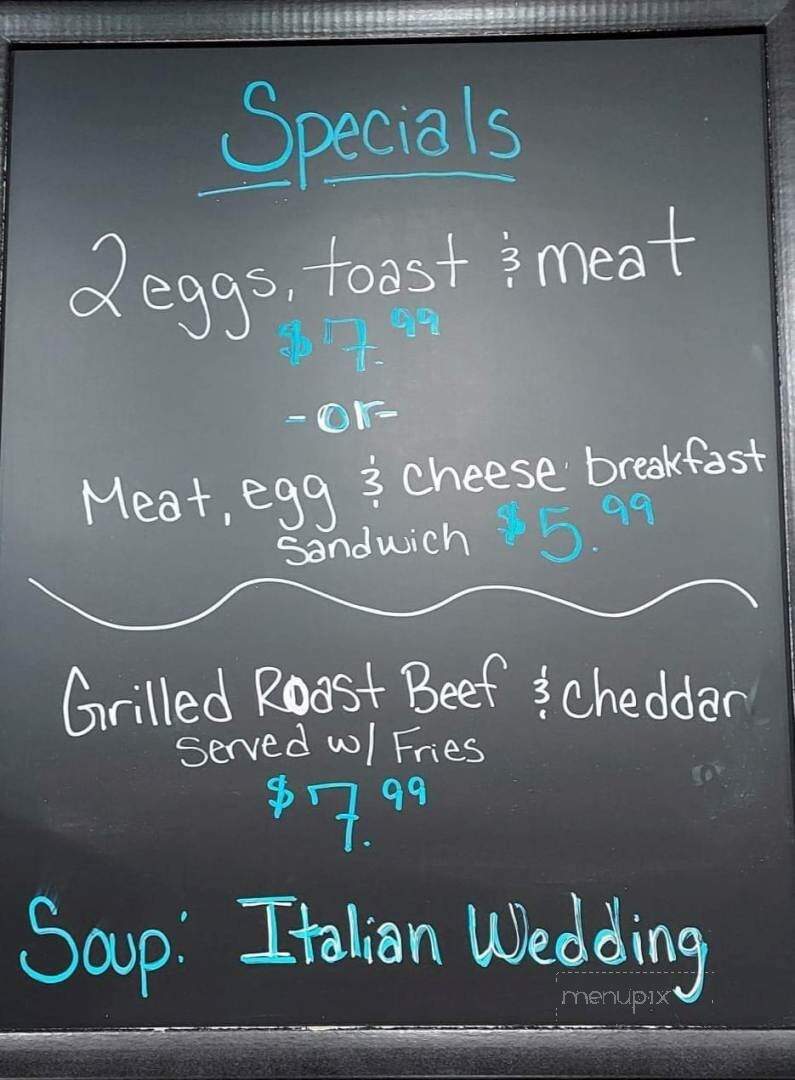 Specials
2 eggs, toast & meat
$7.99
-or-
Meat, egg & cheese breakfast
sandwich $5.99
Grilled Roast Beef & cheddar
served w/ Fries
$7.99
Soup: Italian Wedding
menupix